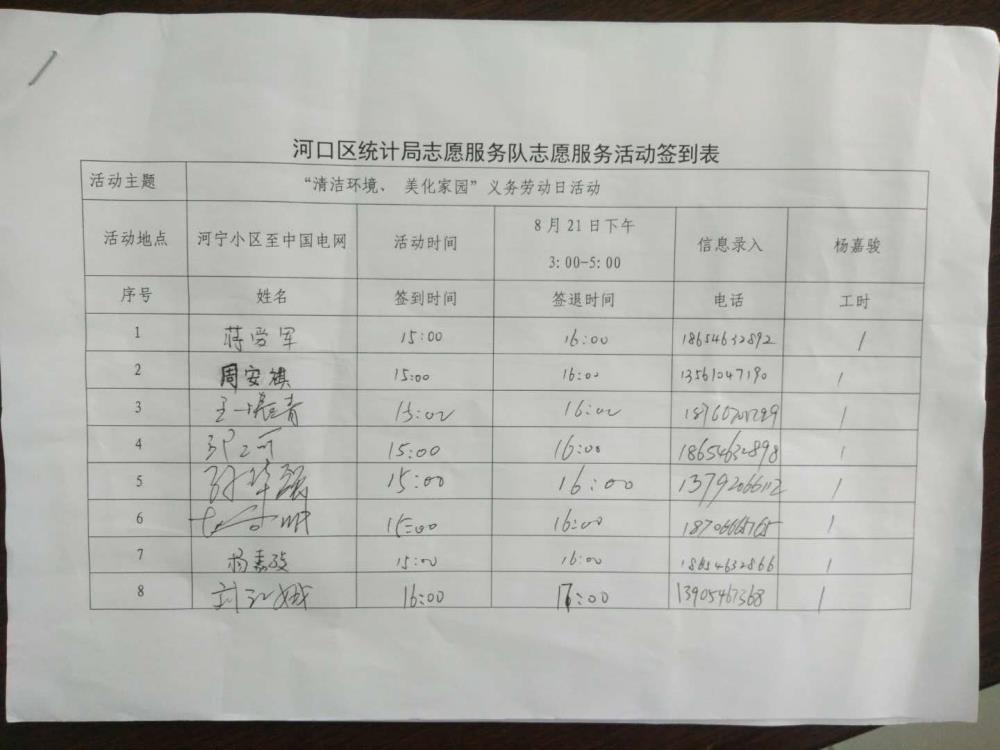 河口区统计局志愿服务队志愿服务活动签到表
活动主题 “清洁环境、 美化家园”义务劳动日活动
活动地点 河宁小区至中国电网 活动时间 8月21日下午 3:00-5:00 信息录入 杨嘉骏
序号 姓名 签到时间 签退时间 电话 工时
1 蒋爱军 15:00 16:00 18654632892 1
2 周安祺 15:00 16:00 13561047190 1
3 15:00 16:00 1
4 15:00 16:00 18654632898 1
5 15:00 16:00 13792066112 1
6 15:00 16:00 18706665765 1
7 杨嘉骏 15:00 16:00 18654632866 1
8 16:00 17:00 13905467368 1